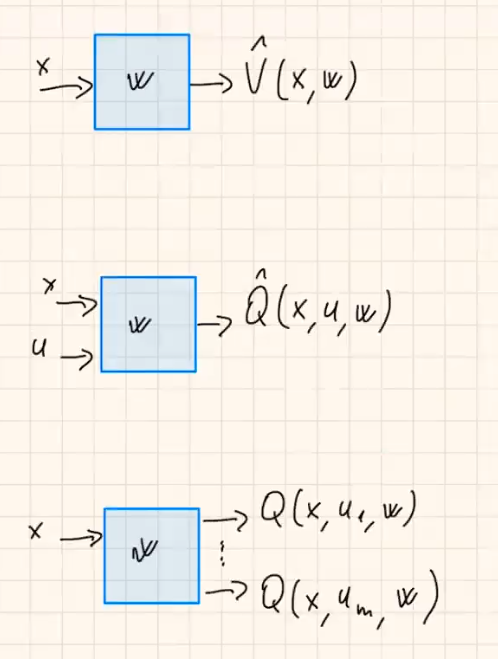 x → w → V̂(x,w)
x → w → Q̂(x,u,w)
u →
x → w → Q(x,u₁,w)
⋮
→ Q(x,uₘ,w)